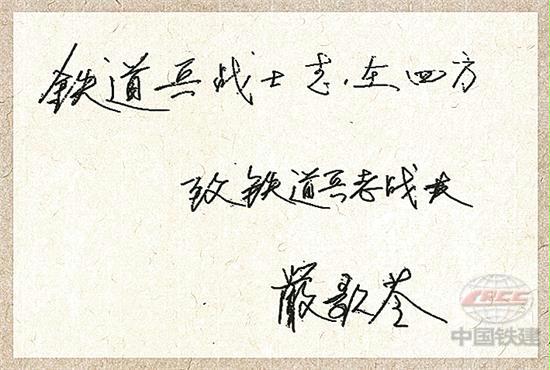 铁道兵战士志在四方
致铁道兵老战友
严歌苓
CRCC
中国铁建